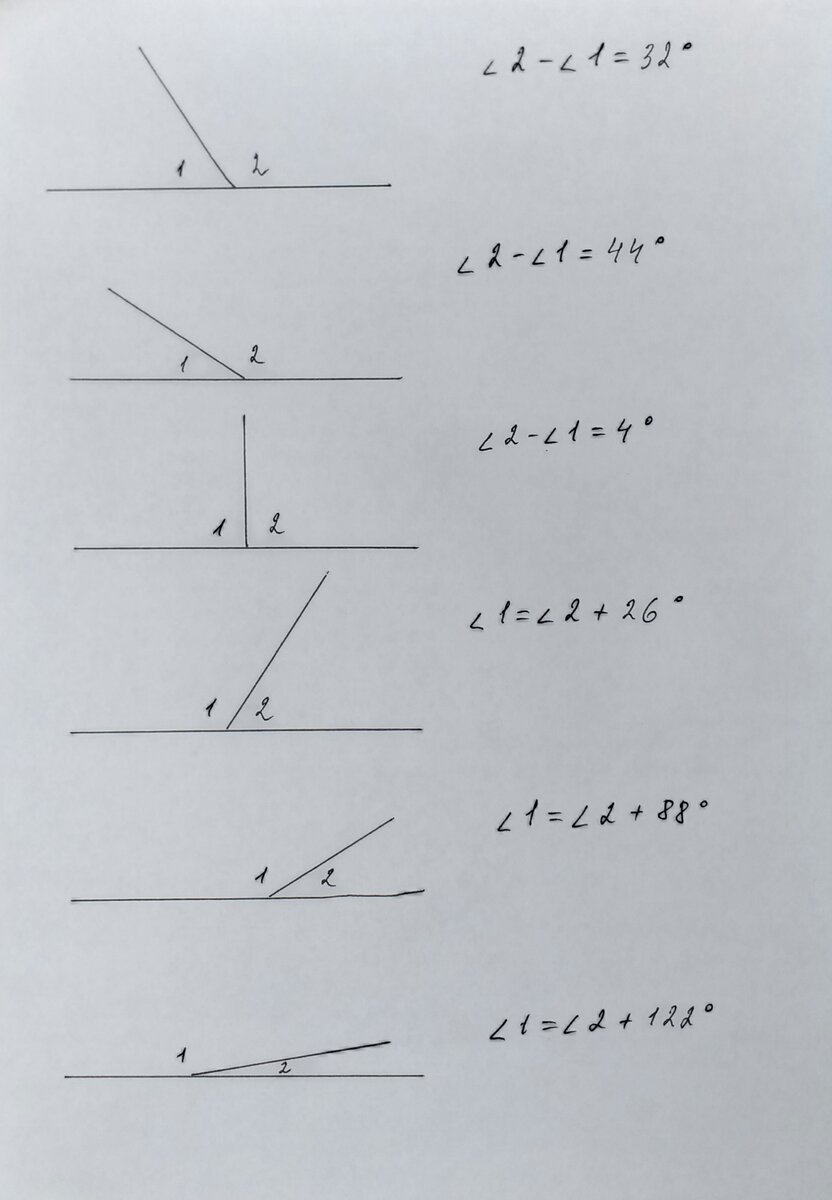 ∠2-∠1=32°
1 2
∠2-∠1=44°
1 2
∠2-∠1=4°
1 2
∠1=∠2+26°
1 2
∠1=∠2+88°
1 2
∠1=∠2+122°
1 2